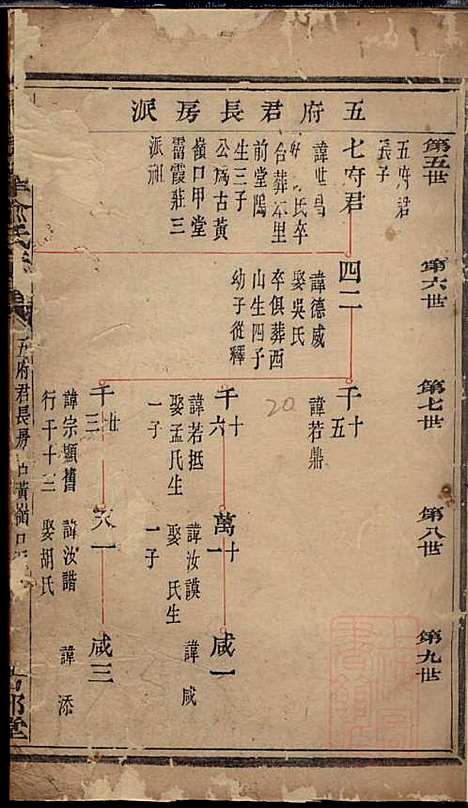 五府君長房派
第五世
第六世
第七世
第八世
第九世
五府君
長子
七府君
諱世昌
氏卒
合葬本里
前堂隝
生三子
公爲古黄
嶺口甲堂
霤霞莊三
派祖
四二
諱德威
娶吳氏
卒俱葬西
山生四子
幼子從釋
千十五
諱若鼎
千十六
諱若抵
娶孟氏生
一子
萬十一
諱汝謨
娶 氏生
一子
咸一
諱咸
千廿三
諱宗顯舊
行千十三
一
諱汝諧
娶胡氏
咸三
諱添
20
俞氏
五府君長房 古黄嶺口